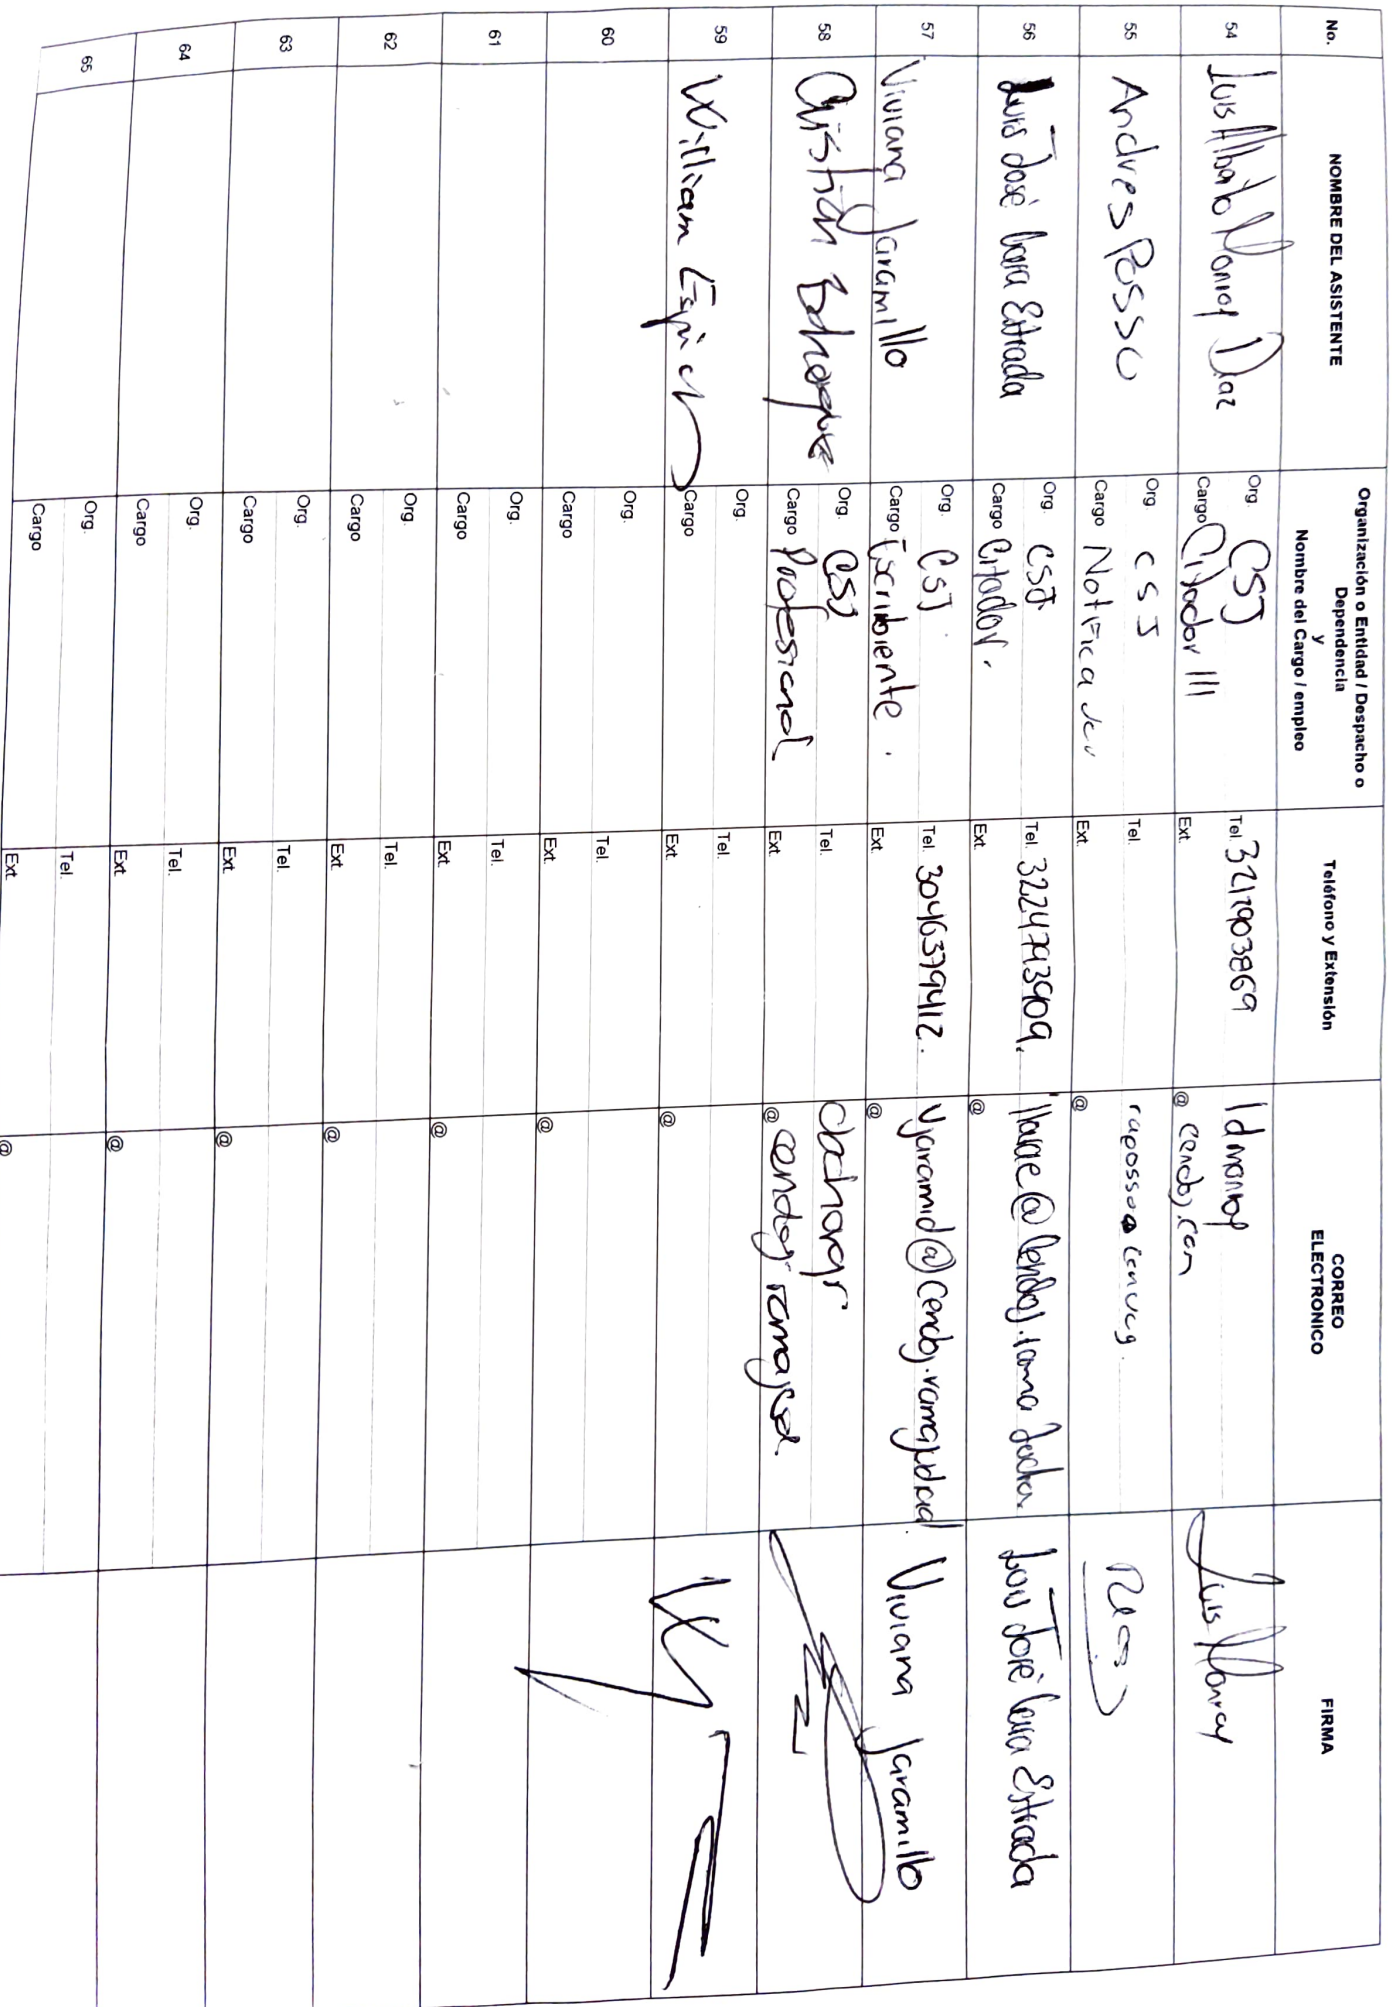 No.
NOMBRE DEL ASISTENTE
Organización o Entidad / Despacho o
Dependencia
y
Nombre del Cargo / empleo
Teléfono y Extensión
CORREO
ELECTRONICO
FIRMA
54
Luis Albato Monroy Diaz
Org. CSJ
Cargo Citador III
Tel. 3217903869
Ext.
ldmonroy
@ cendoj.com
Luis Monroy
55
Andres Posso
Org CSJ
Cargo Notificador
Tel.
Ext
raposso
@
56
Luis José Lara Estrada
Org. CSJ
Cargo Citador.
Tel. 3224793909.
Ext.
llarae@cendoj.rama
@
Luis José Lara Estrada
57
Viviana Jaramillo
Org. CSJ
Cargo Escribiente.
Tel. 3046379412.
Ext.
vjaramid@cendoj.ramajudicial.
@
Viviana Jaramillo
58
Cristian
Org. CSJ
Cargo Profesional
Tel.
Ext.
@ cendoj.ramajud.
59
William
Org.
Cargo
Tel.
Ext
@
60
Org.
Cargo
Tel.
Ext
@
61
Org.
Cargo
Tel.
Ext
@
62
Org
Cargo
Tel.
Ext
@
63
Org.
Cargo
Tel.
Ext
@
64
Org.
Cargo
Tel.
Ext
@
65
Org.
Cargo
Tel.
Ext
@